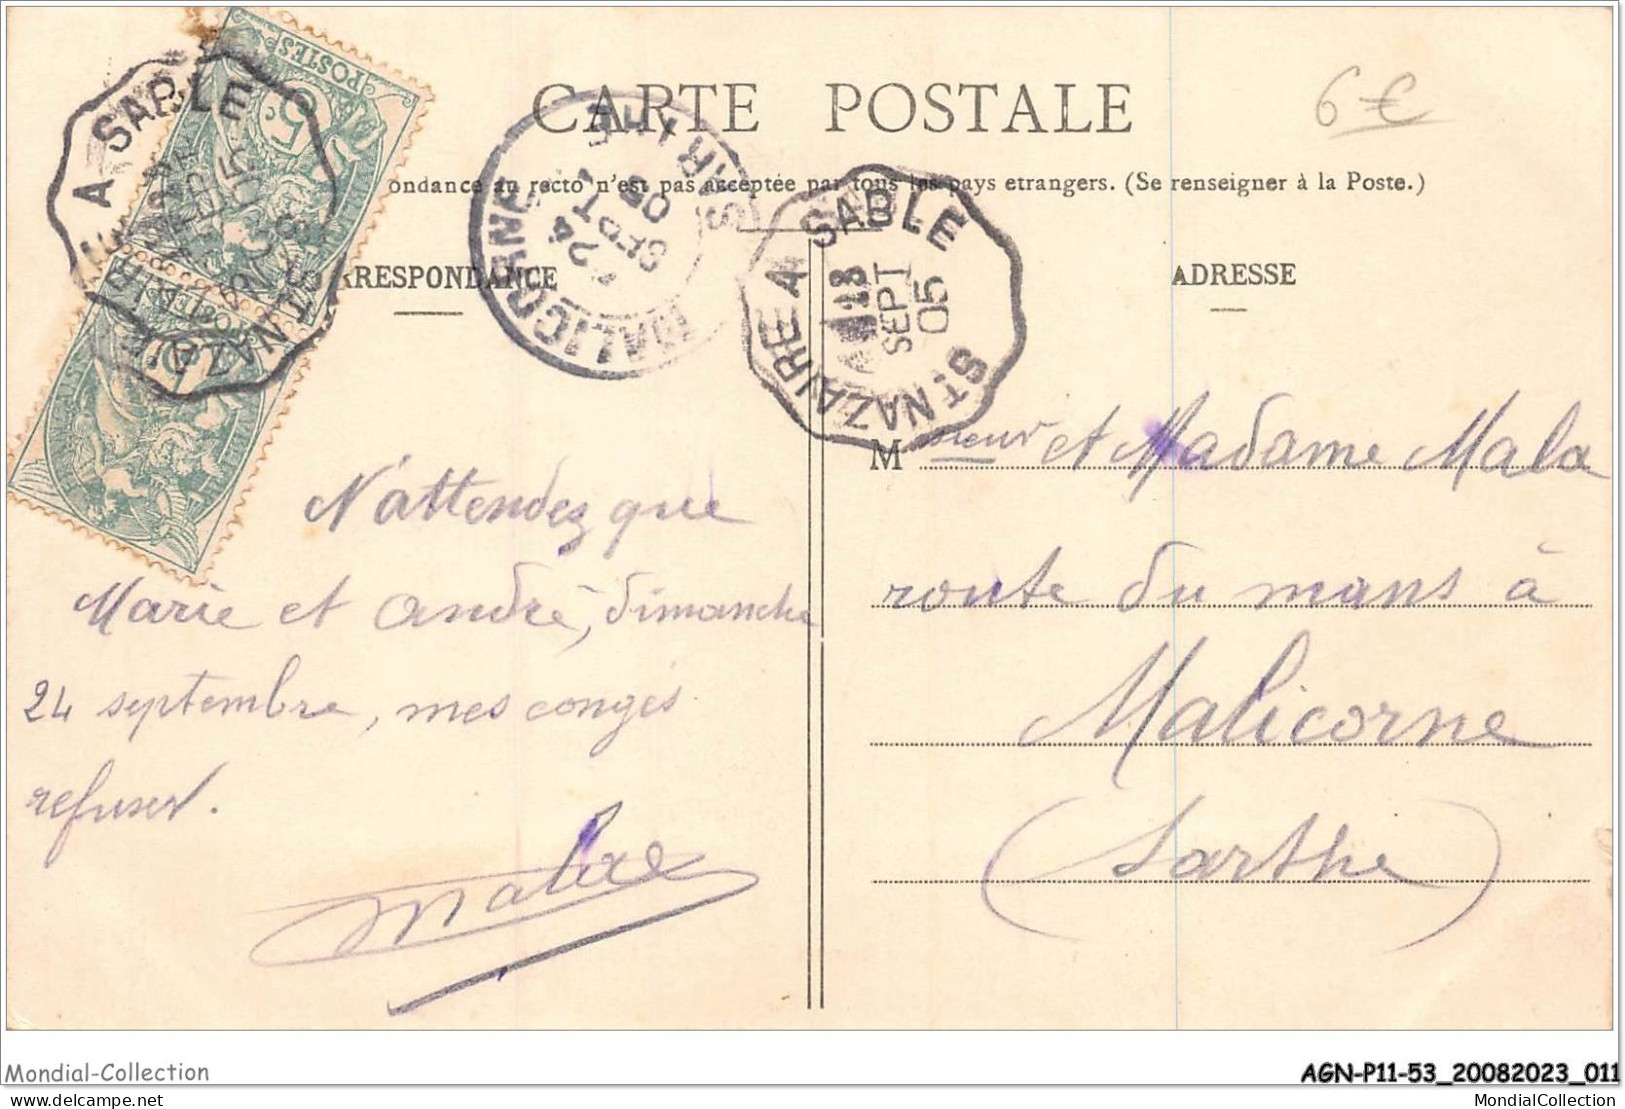 CARTE POSTALE
6 €
ondance au recto n'est pas acceptée par tous les pays etrangers. (Se renseigner à la Poste.)
RRESPONDANCE
ADRESSE
POSTES
5c
ST NAZAIRE A SABLE
MALICORNE
SARTHE
24
SEPT
05
ST NAZAIRE A SABLE
SEPT
05
N'attendez que
Marie et andré, dimanche
24 septembre, mes conges
refuser.
M sieur et Madame Mala
route du mans à
Malicorne
(Sarthe)
Mondial-Collection
AGN-P11-53_20082023_011
delcampe.net
MondialCollection